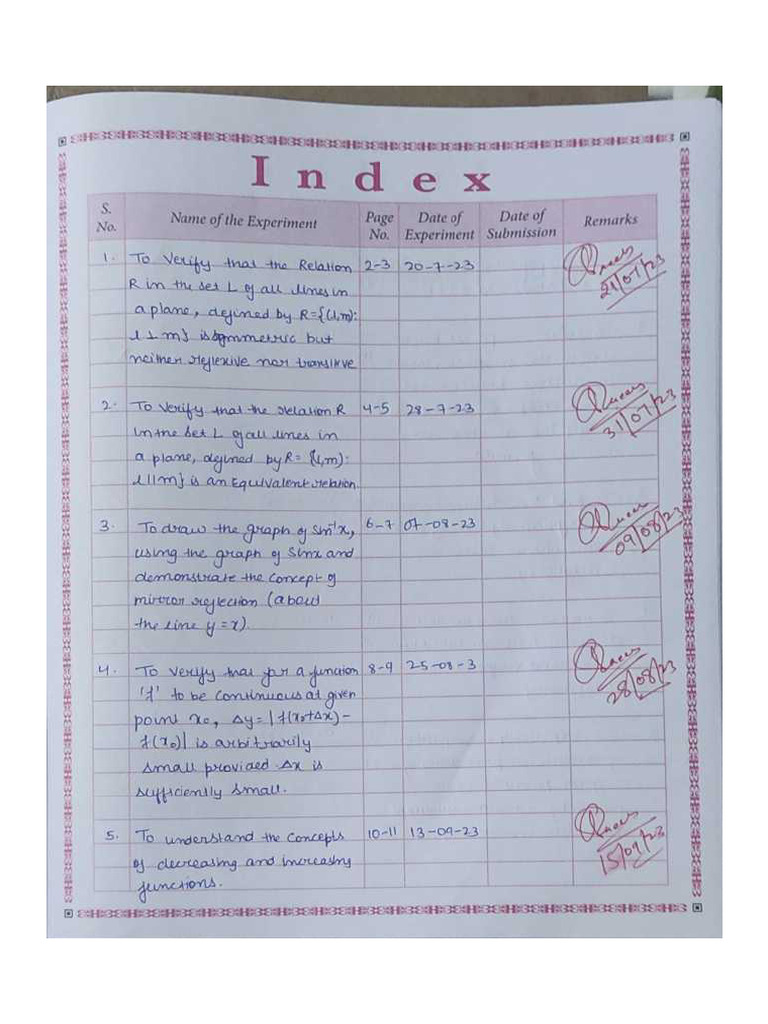 Index
S. No. Name of the Experiment Page No. Date of Experiment Date of Submission Remarks
1. To Verify that the Relation 2-3 20-7-23
R in the set L of all lines in 21/07/23
a plane, defined by R={(l,m):
l ⊥ m} is symmetric but
neither reflexive nor transitive
2. To Verify that the relation R 4-5 28-7-23
in the set L of all lines in 31/07/23
a plane, defined by R= {l,m):
l || m} is an Equivalent relation
3. To draw the graph of Sin⁻¹x, 6-7 07-08-23
using the graph of Sinx and 09/08/23
demonstrate the concept of
mirror reflection (about
the line y=x).
4. To Verify that for a function 8-9 25-08-3
'f' to be continuous at given 28/08/23
point x₀, Δy=|f(x₀+Δx)-
f(x₀)| is arbitrarily
small provided Δx is
sufficiently small.
5. To understand the concepts 10-11 13-09-23
of decreasing and increasing 15/09/23
functions.